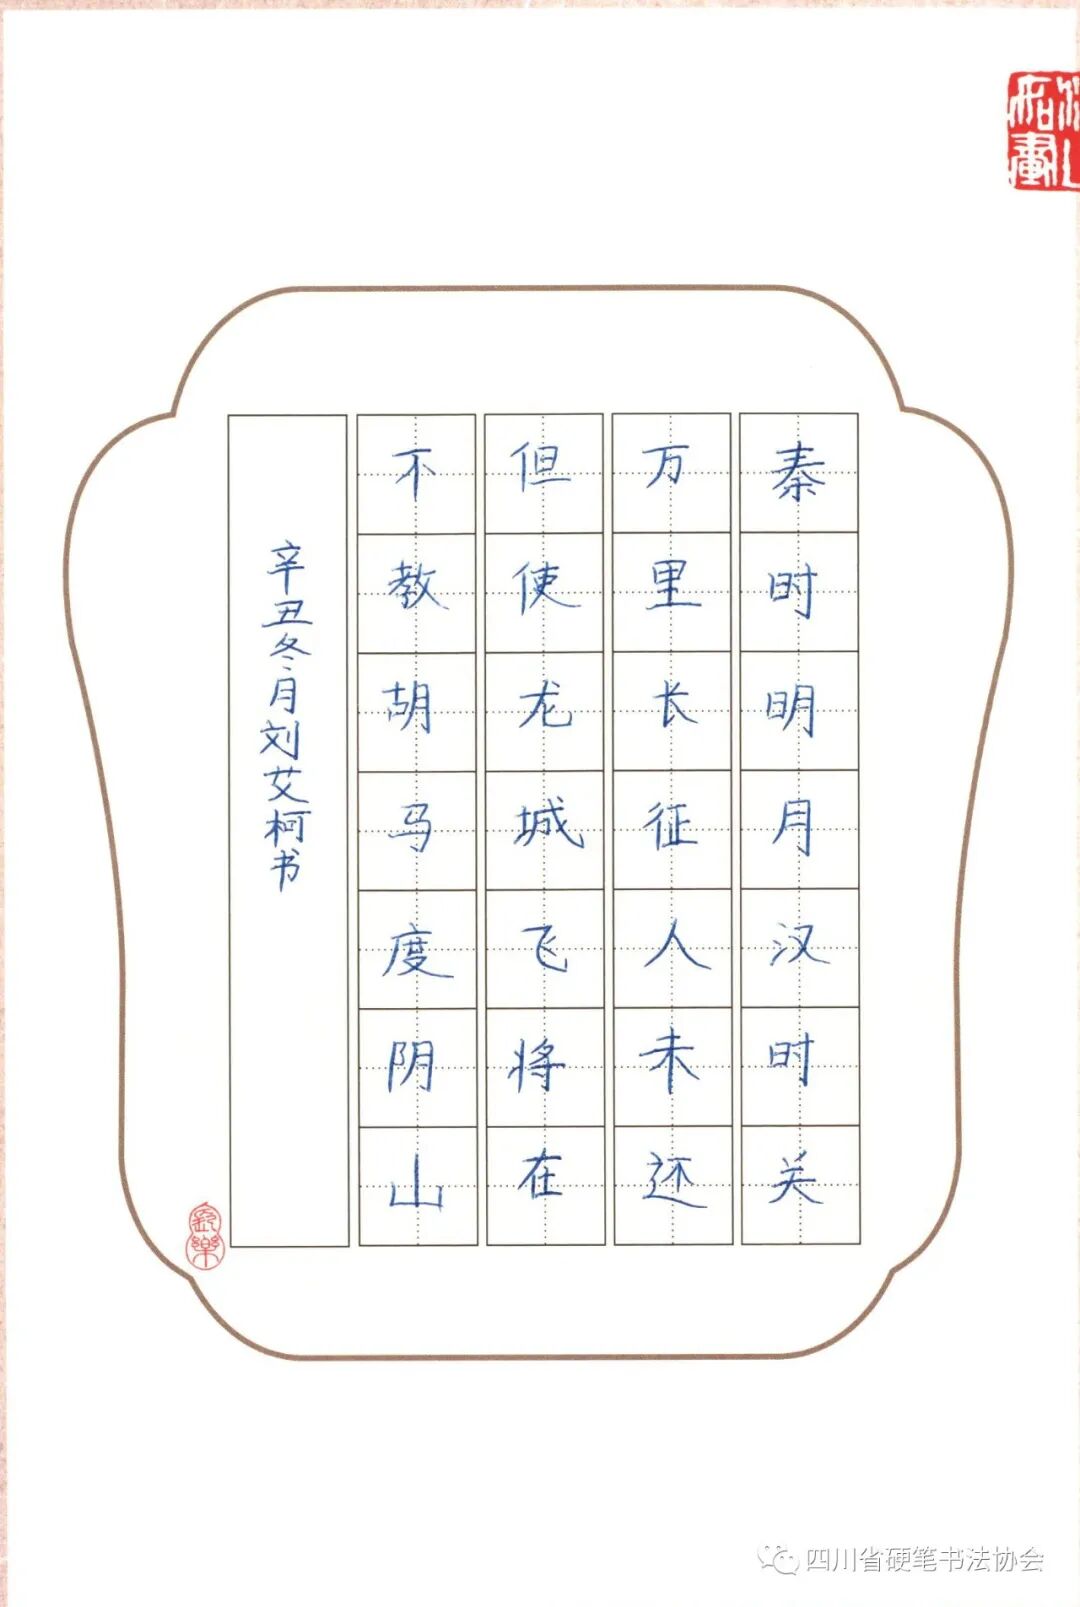 秦时明月汉时关
万里长征人未还
但使龙城飞将在
不教胡马度阴山
辛丑冬月刘艾柯书
四川省硬笔书法协会